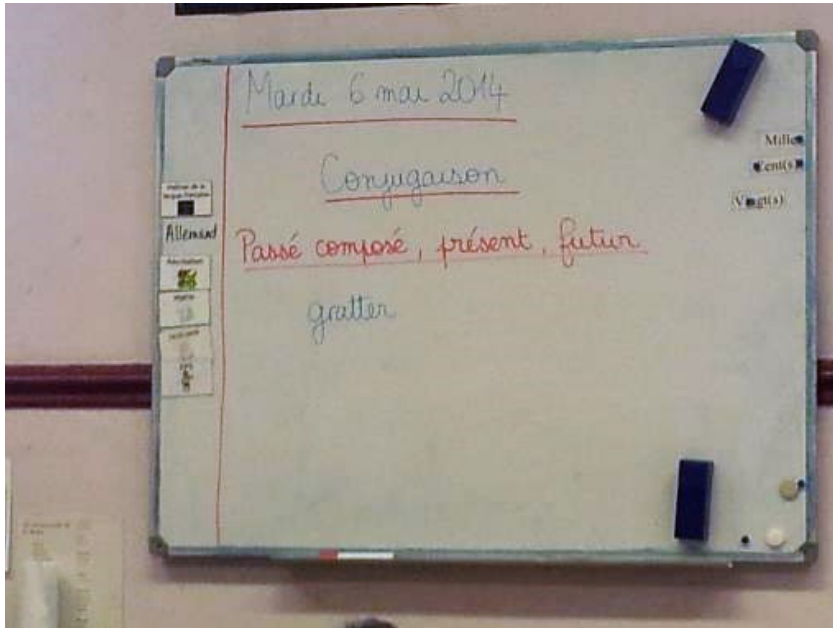 Mardi 6 mai 2014
Conjugaison
Passé composé, présent, futur
gratter
Allemand
Mille
Cent(s)
Vingt(s)